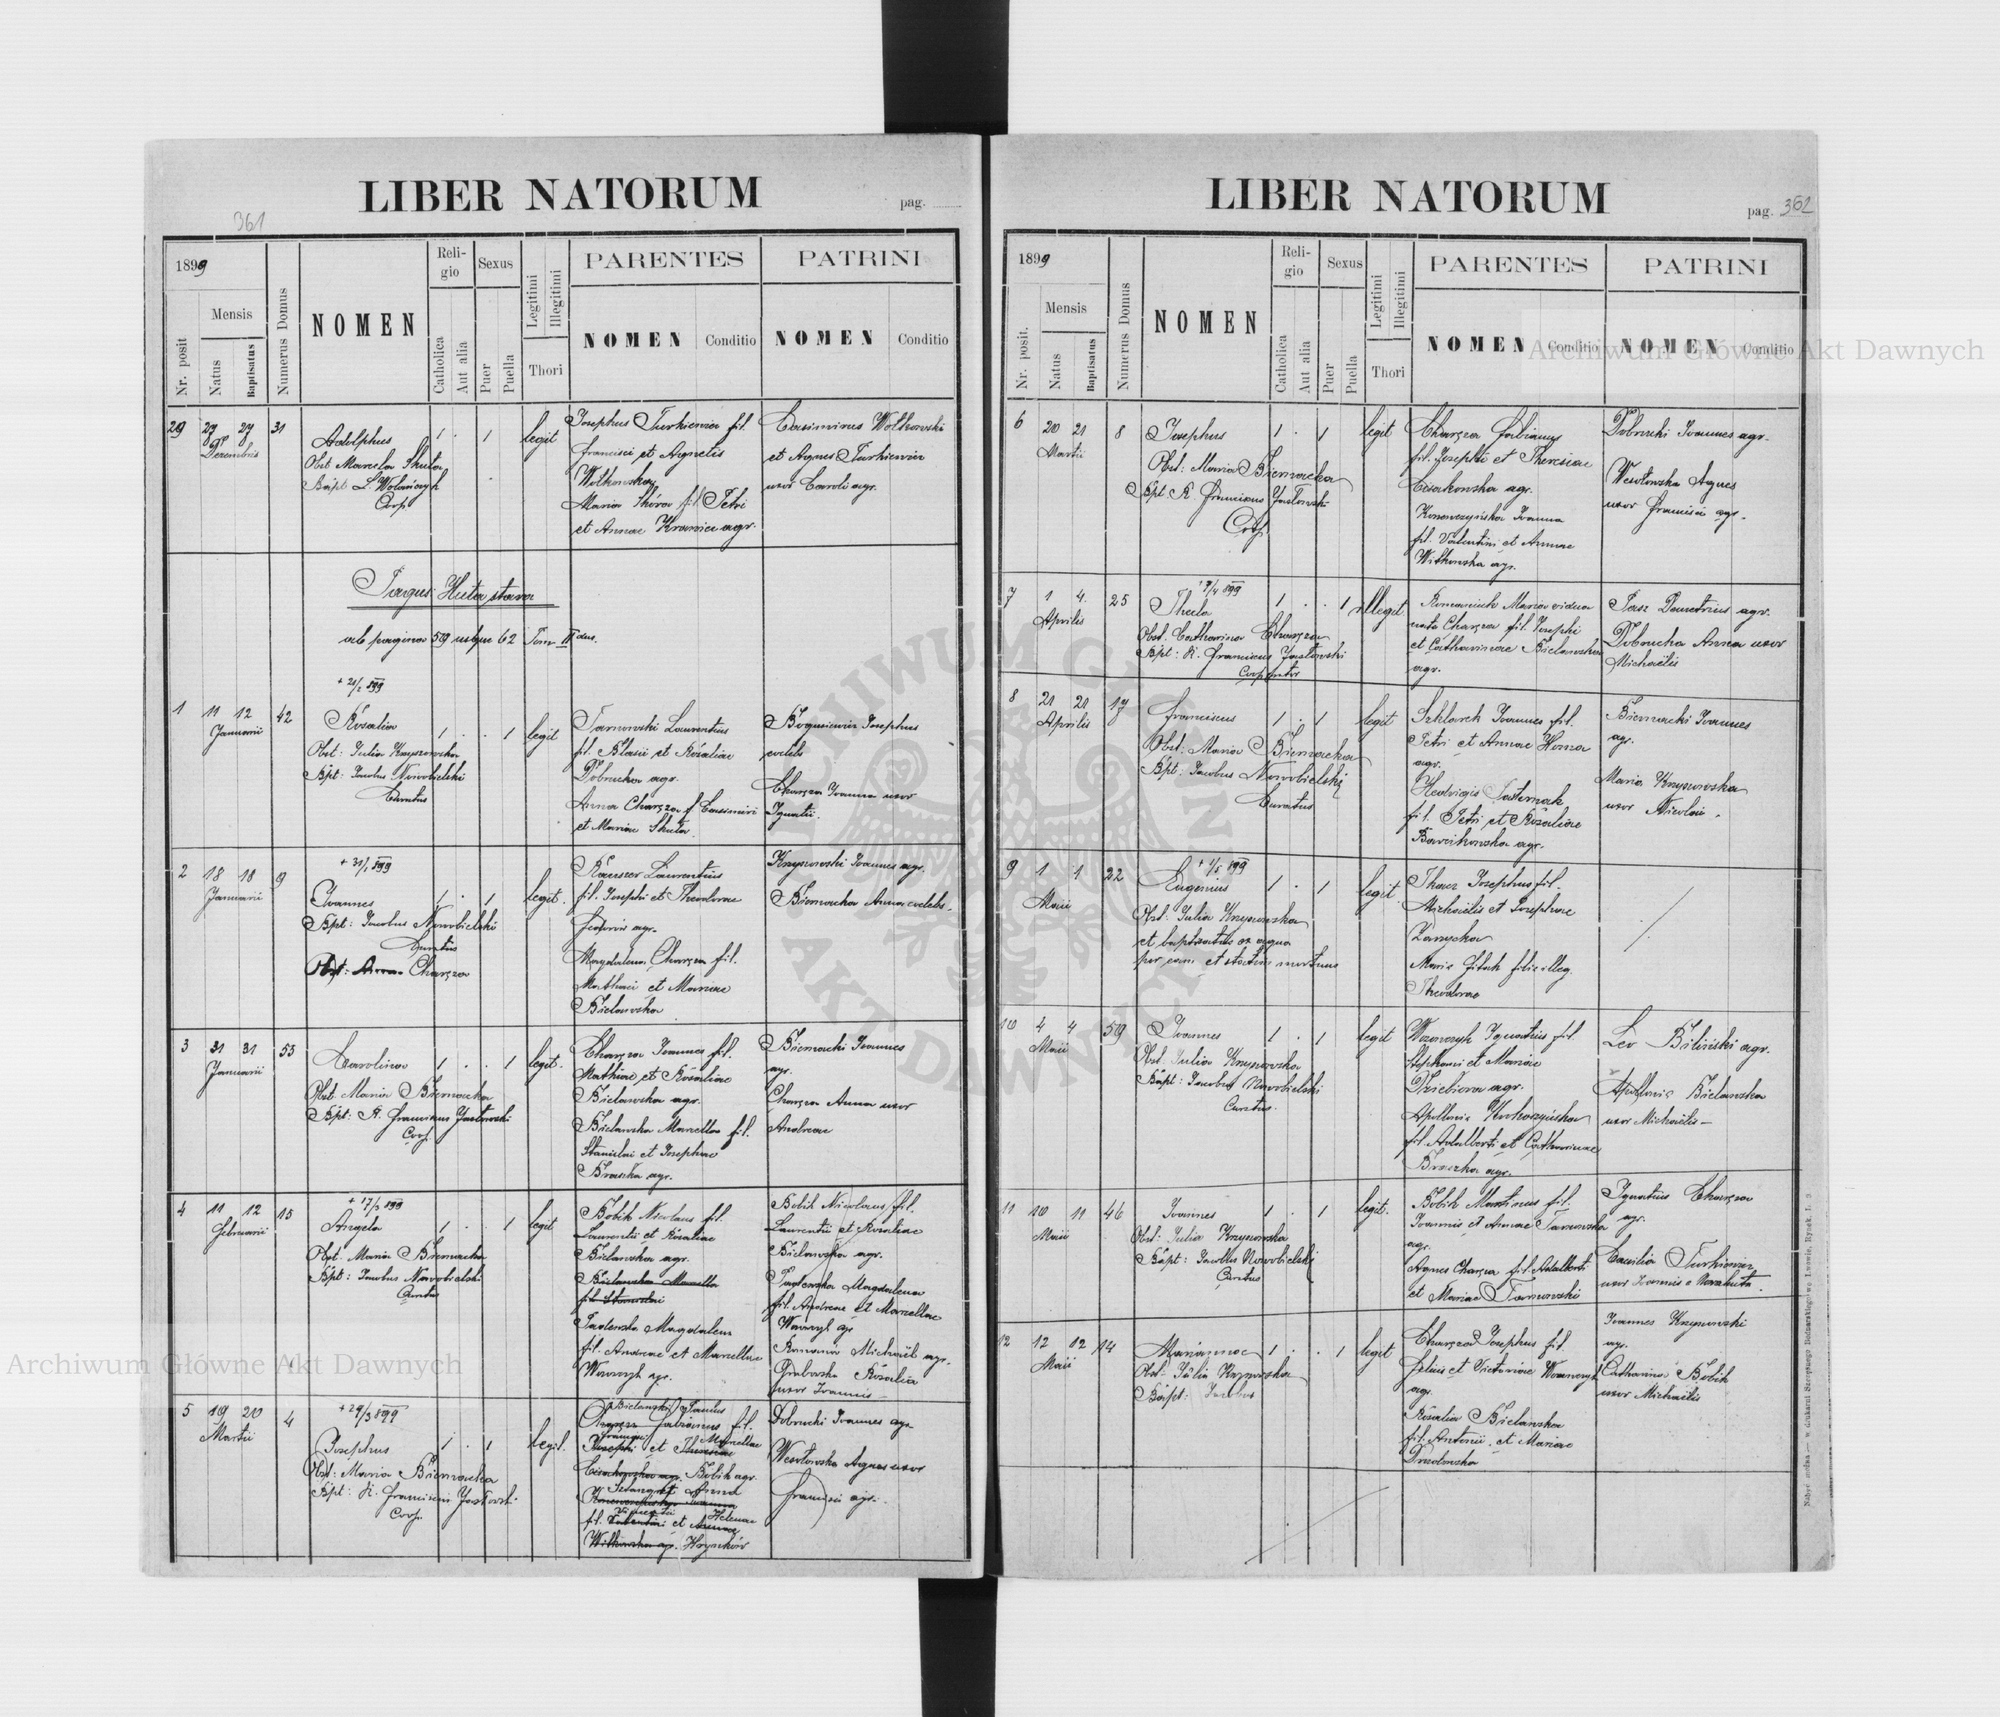 LIBER NATORUM
pag.
361
1899
Nr. posit
Mensis
Natus
Baptisatus
Numerus Domus
NOMEN
Reli-
gio
Catholica
Aut alia
Sexus
Puer
Puella
Legitimi
Illegitimi
Thori
PARENTES
NOMEN
Conditio
PATRINI
NOMEN
Conditio
29 27 27 31
Decembris
Adolphus
Obst Marcela Skuta
Bapt L. Wolańczyk
Coop
1 . 1
legit
Josephus Turkiewicz fil.
Francisci et Agnetis
Wolkowska
Maria Skóra fil Petri
et Annae Krawiec agr.
Casimirus Wolkowski
et Agnes Turkiewicz
uxor Caroli agr.
Pagus Huta stara
ab pagina 59 usque 62 Tom II dus.
1 11 12 42
Januarii
Rosalia
Obst: Julia Knysowska
Bpt: Jacobus Nowobielski
Curatus
1 . . 1
legit
Tarnowski Laurentius
fil. Blasii et Rosaliae
Dobrucka agr.
Anna Charęza f. Casimiri
et Mariae Skuta
Boguniewicz Josephus
caelebs
Charęza Joanna uxor
Ignatii.
2 18 18 9
Januarii
+ 31/1 899
Joannes
Bpt: Jacobus Nowobielski
Curatus
Obst: Anna Charęza
1 . 1
legit.
fil. Josephi et Theodorae
Fedorów agr.
Magdalena Charęza fil.
Mathaei et Mariae
Bielawska
Knysowski Joannes agr.
Biernacka Anna caelebs.
3 31 31 53
Januarii
Carolina
Obst. Maria Biernacka
Bpt: R. Franciscus Jasłowski
Coop.
1 . . 1
legit.
Charęza Joannes fil.
Mathiae et Rosaliae
Bielawska agr.
Bielawska Marcella fil.
Stanislai et Josephae
Braszka agr.
Biernacki Joannes
agr.
Charęza Anna uxor
Andreae
4 11 12 15
Februarii
+ 17/2 899
Angela
Obst. Maria Biernacka
Bpt: Jacobus Nowobielski
Curatus
1 . . 1
legit
Bobik Nicolaus fil.
Laurentii et Rosaliae
Bielawska agr.
Bielawska Marcella
fil. Stanislai
Magdalena
fil. Andreae et Marcellae
Wawryk agr.
Bobik Nicolaus fil.
Laurentii et Rosaliae
Bielawska agr.
Magdalena
fil. Andreae et Marcellae
Wawryk agr
Romanów Michaël agr.
Grabowska Rosalia
uxor Joannis
5 19 20 4
Martii
+ 29/3 899
Josephus
Obst: Maria Biernacka
Bpt: R. Franciscus Jasłowski
Coop.
1 . 1
legit.
Bielawski Paulus
Charęza Fabianus fil.
Marcellae
Josephi et Theresiae
Cisakowska agr. Bobik agr.
Anna
Konowczyńska Joanna
Helenae
fil. Valentini et Annae
Witkowska agr. Hryńków
Dobrucki Joannes agr
Wesołowska Agnes uxor
Francisci agr.
LIBER NATORUM
pag. 362
1899
Nr. posit.
Mensis
Natus
Baptisatus
Numerus Domus
NOMEN
Reli-
gio
Catholica
Aut alia
Sexus
Puer
Puella
Legitimi
Illegitimi
Thori
PARENTES
NOMEN
Conditio
PATRINI
NOMEN
Conditio
6 20 21 8
Martii
Josephus
Obst: Maria Biernacka
Bpt. R. Franciscus Jasłowski
Coop.
1 . 1
legit
Charęza Fabianus
fil. Josephi et Theresiae
Cisakowska agr.
Konowczyńska Joanna
fil. Valentini et Annae
Witkowska agr.
Dobrucki Joannes agr.
Wesołowska Agnes
uxor Francisci agr.
7 1 4. 25
Aprilis
Thecla
Obst. Catharina Charęza
Bpt: R. Franciscus Jasłowski
Cooperator
1 . . 1
illegit
Romaniuch Maria vidua
nata Charęza fil. Josephi
et Catharinae Bielawska
agr.
Jasz Demetrius agr.
Dobrucka Anna uxor
Michaëlis
8 21 21 17
Aprilis
Franciscus
Obst: Maria Biernacka
Bpt: Jacobus Nowobielski
Curatus
1 . 1
legit
Szklarek Joannes fil.
Petri et Annae Horna
agr.
Hedvigis Pasternak
fil. Petri et Rosaliae
agr.
Biernacki Joannes
agr.
Maria Knysowska
uxor Nicolai.
9 1 1 22
Maii
+ 1/5 899
Eugenius
Obst: Julia Knysowska
et baptisatus ex aqua
per eam et statim mortuus
1 . 1
legit.
Tkacz Josephus fil.
Michaëlis et Josephae
Zarycka
Maria Fitak filia illeg.
Theodorae
10 4 4 59
Maii
Joannes
Obst. Julia Knysowska
Bapt: Jacobus Nowobielski
Curatus.
1 . 1
legit
Woronczyk Ignatius fil.
Stephani et Mariae
agr.
Apollonia
fil. Adalberti et Catharinae
Braszka agr.
Leo Biliński agr.
Apollonia Bielawska
uxor Michaëlis
11 10 11 46
Maii
Joannes
Obst: Julia Knysowska
Bapt: Jacobus Nowobielski
Curatus
1 . 1
legit.
Bobik Martinus fil.
Joannis et Annae Tarnowska
agr.
Agnes Charęza fil. Adalberti
et Mariae Tarnowski
Ignatius Charęza
agr.
Caecilia Turkiewicz
uxor Joannis
12 12 12 14
Maii
Marianna
Obst: Julia Knysowska
Bapt: Jacobus
1 . . 1
legit
Charęza Josephus fil.
Felicis et Victoriae Woronczyk
agr.
Rosalia Bielawska
fil. Antonii et Mariae
Drozdowska
Joannes Knysowski
agr.
Catharina Bobik
uxor Michaëlis
Archiwum Główne Akt Dawnych
Archiwum Główne Akt Dawnych
ARCHIWUM GŁÓWNE AKT DAWNYCH